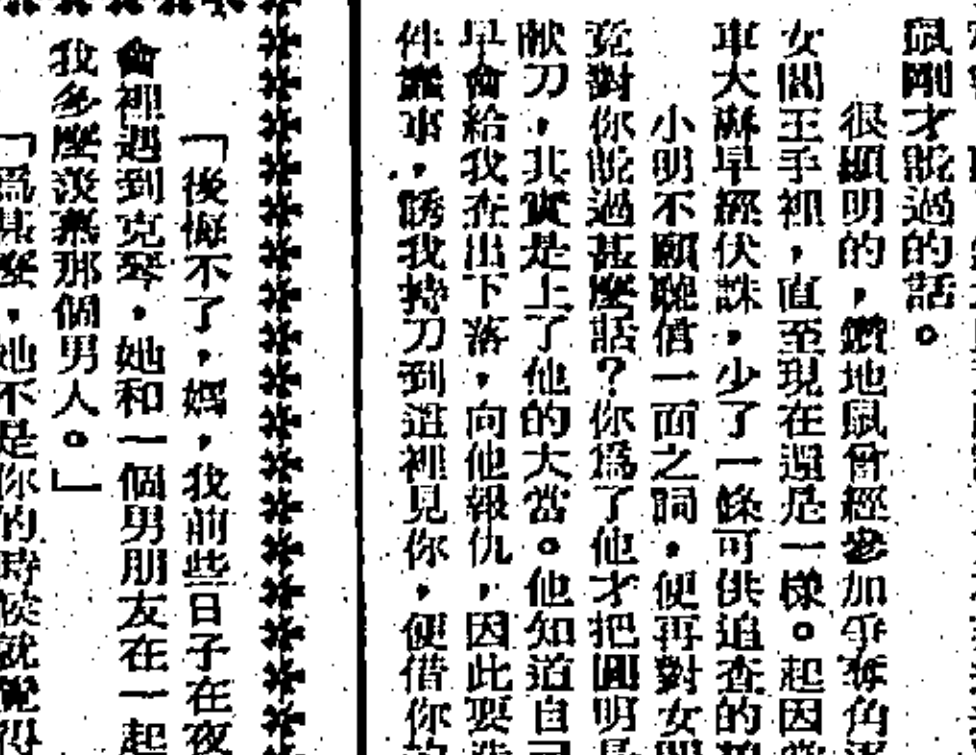 鼠剛才說過的話。
很顯明的，鑽地鼠曾經參加爭奪角
女閻王手裡，直至現在還是一樣。起因
車大麻早經伏誅，少了一條可供追查的
小明不願聽信一面之詞，便再對女
竟對你說過甚麼話？你爲了他才把圓明
献刀，其實是上了他的大當。他知道自
早會給我查出下落，向他報仇，因此要
件蠢事，誘我揍刀到這裡見你，便借你
「後悔不了，媽，我前些日子在夜
會裡遇到克琴，她和一個男朋友在一起
我多麼羨慕那個男人。」
「爲甚麼，她不是你的時候就覺得